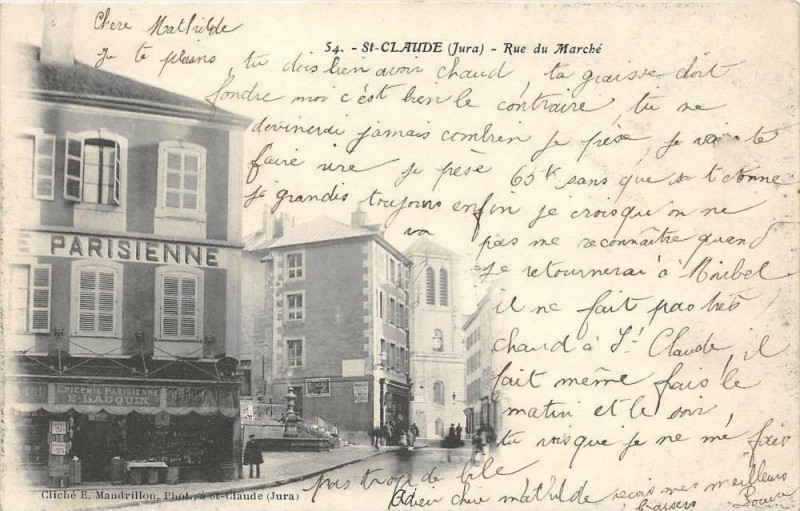 Chere Mathilde
54. - St-CLAUDE (Jura) - Rue du Marché
Je te plains, tu dois bien avoir chaud, ta graisse doit
fondre moi c'est bien le contraire, tu ne
devineras jamais combien je pèse, je vais te
faire rire je pèse 63k sans que ça t'étonne
je grandis toujours enfin je crois qu'on ne
va pas me reconnaître quand
je retournerai à Miribel
il ne fait pas très
chaud à St Claude, il
fait même frais le
matin et le soir,
tu vois que je ne me fais
pas trop de bile
Adieu chère Mathilde reçois mes meilleurs
baisers
PARISIENNE
EPICERIE PARISIENNE
E. LAUQUIN
Cliché E. Mandrillon, Phot., à St-Claude (Jura)